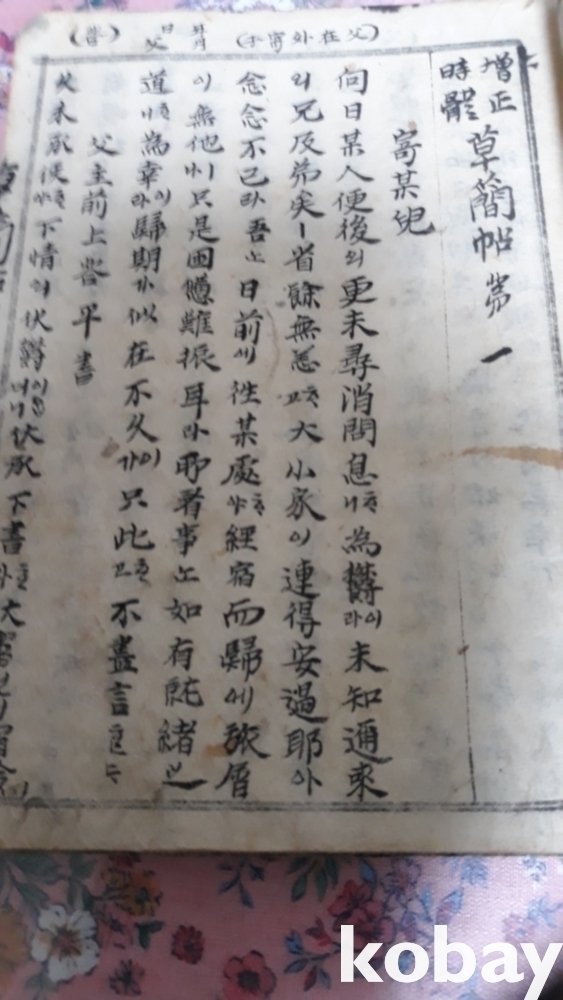 (父在外寄子)
月
日
父
(答)
增正
時體
草簡帖第一
寄某兒
向日某人便後의更未尋消問息ᄒᆞ니為欝이라未知邇來
의兄及弟矣ㅣ省餘無恙ᄒᆞ고大小家이連得安過耶아
念念不已라吾ᄂᆞᆫ日前에往某處ᄒᆞ야經宿而歸에旅
이無他나只是困憊難振耳라所看事ᄂᆞᆫ如有就緒之
道ᄒᆞ니為幸이라歸期가似在不久只此ᄒᆞ고不盡言
父主前上答平書
伏未承便ᄒᆞ야下情의伏欝이옵더니伏承下書